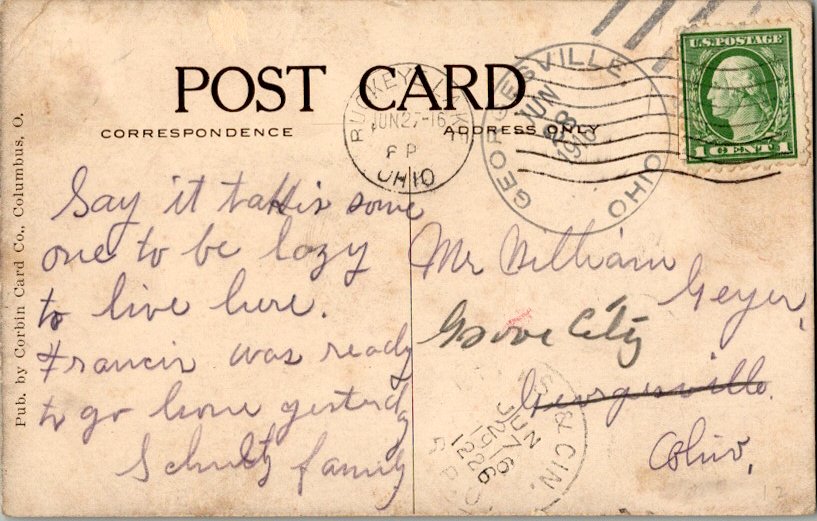 POST CARD
CORRESPONDENCE
ADDRESS ONLY
Pub. by Corbin Card Co., Columbus, O.
U.S. POSTAGE
1 CENT 1
BUCKEYE LAKE
JUN 27-16
P
OHIO
GEORGESVILLE,
JUN
28
1916
OHIO
Say it takkis some
one to be lazy
to live here.
Francis was ready
to go home yesterday
Schultz family
Mr William
Geyer,
Grove City
Georgesville.
Ohio,
& CIN.
JUN